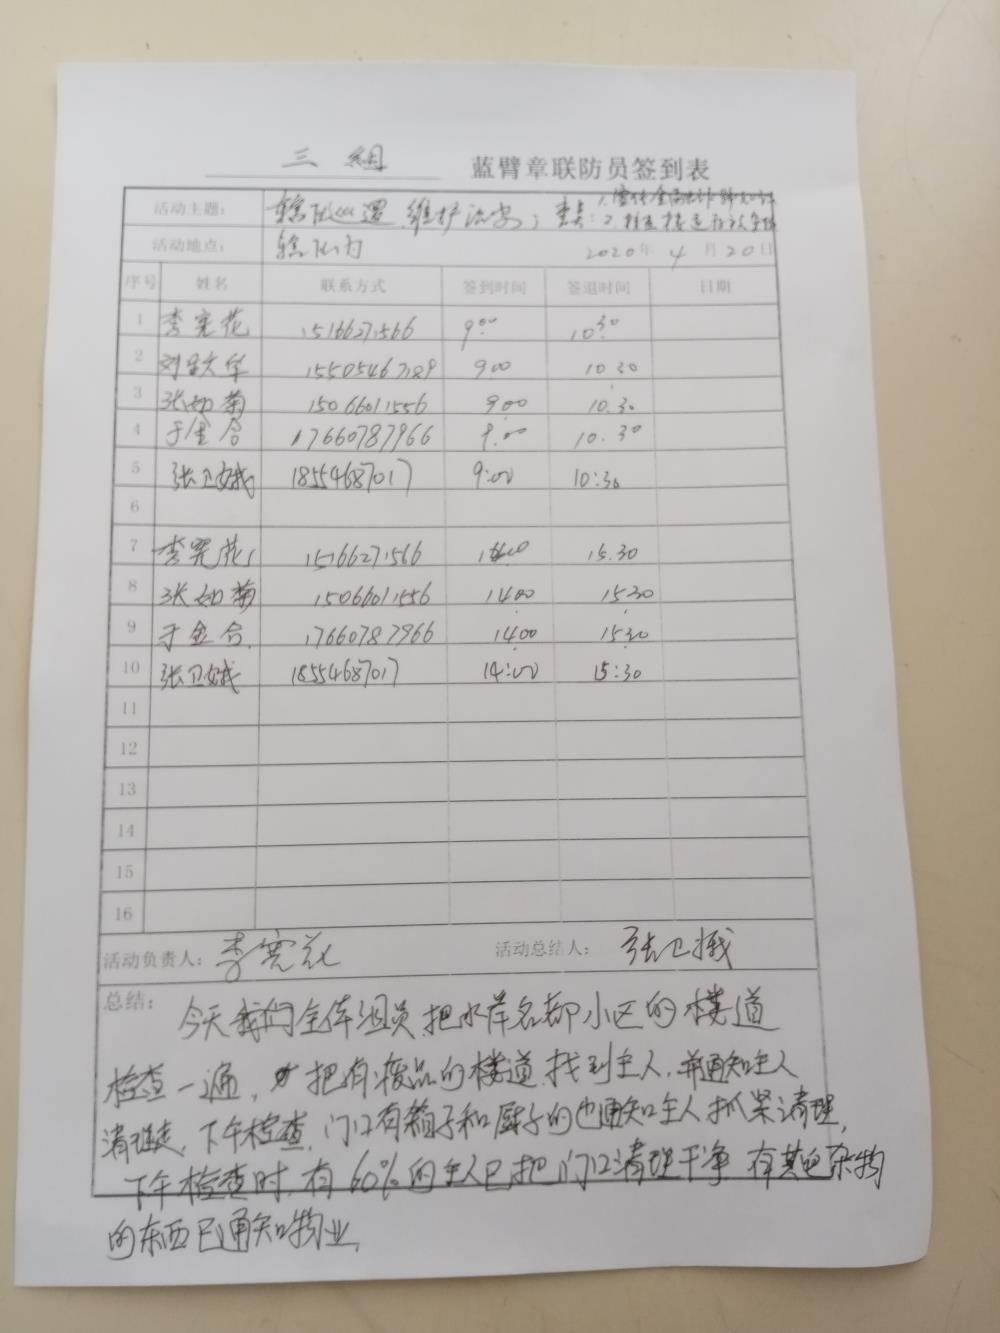 三组 蓝臂章联防员签到表
活动主题: 辖区巡逻,维护治安;
活动地点: 辖区内 2020年4月20日
序号 姓名 联系方式 签到时间 签退时间 日期
1 李宪花 15166271566 9:00 10:30
2 刘 华 15505467189 900 1030
3 张如菊 15066011556 9.00 10.30
4 于金合 17660787966 9.00 10.30
5 张卫娥 18554687017 9:00 10:30
6
7 李宪花 15166271566 15.30
8 张如菊 15066011556 1400 1530
9 于金合. 17660787966 1400 1530
10 张卫娥 18554687017 14:00 15:30
11
12
13
14
15
16
活动负责人: 李宪花 活动总结人: 张卫娥
总结: 今天我们全体组员把水岸名都小区的楼道
检查一遍, 把有废品的楼道找到主人,并通知主人
清理走,下午检查,门口有箱子和厨子的也通知主人抓紧清理,
下午检查时,有60%的主人已把门口清理干净 有其它杂物
的东西已通知物业,